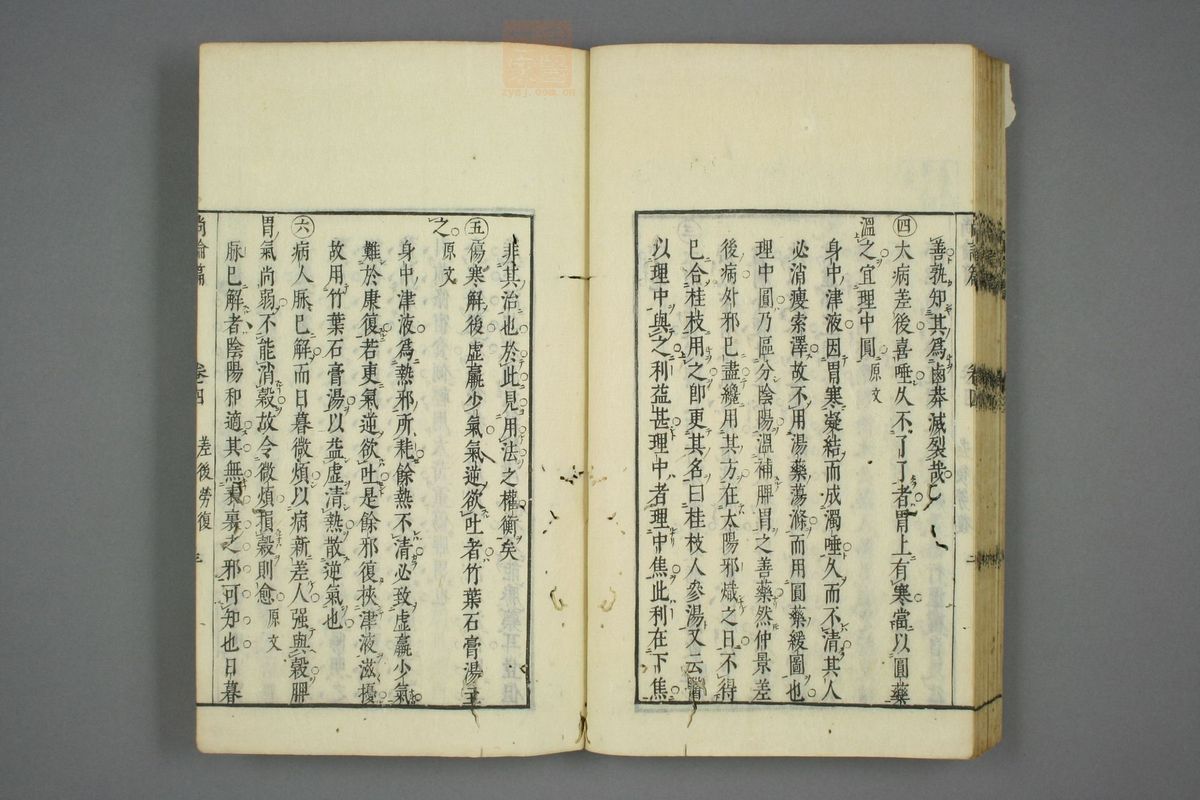 善孰知其爲鹵莽滅裂哉
四大病差後喜唾久不了了者胃上有寒當以圓藥
溫之宜理中圓原文
身中津液因胃寒凝結而成濁唾久而不清其人
必消瘦索澤故不用湯藥蕩滌而用圓藥緩圖也
理中圓乃區分陰陽溫補脾胃之善藥然仲景差
後病外邪已盡纔用其方在太陽邪熾之日不得
已合桂枝用之即更其名曰桂枝人參湯又云醫
以理中與之利益甚理中者理中焦此利在下焦
非其治也於此見用法之權衡矣
五傷寒解後虛羸少氣氣逆欲吐者竹葉石膏湯主
之原文
身中津液爲熱邪所耗餘熱不清必致虛羸少氣
難於康復若更氣逆欲吐是餘邪復挾津液滋擾
故用竹葉石膏湯以益虛清熱散逆氣也
六病人脉已解而日暮微煩以病新差人强與穀脾
胃氣尚弱不能消穀故令微煩損穀則愈原文
脉已解者陰陽和適其無表裏之邪可知也日暮
尚論篇 卷四 差後勞復 三
zysj.com.cn